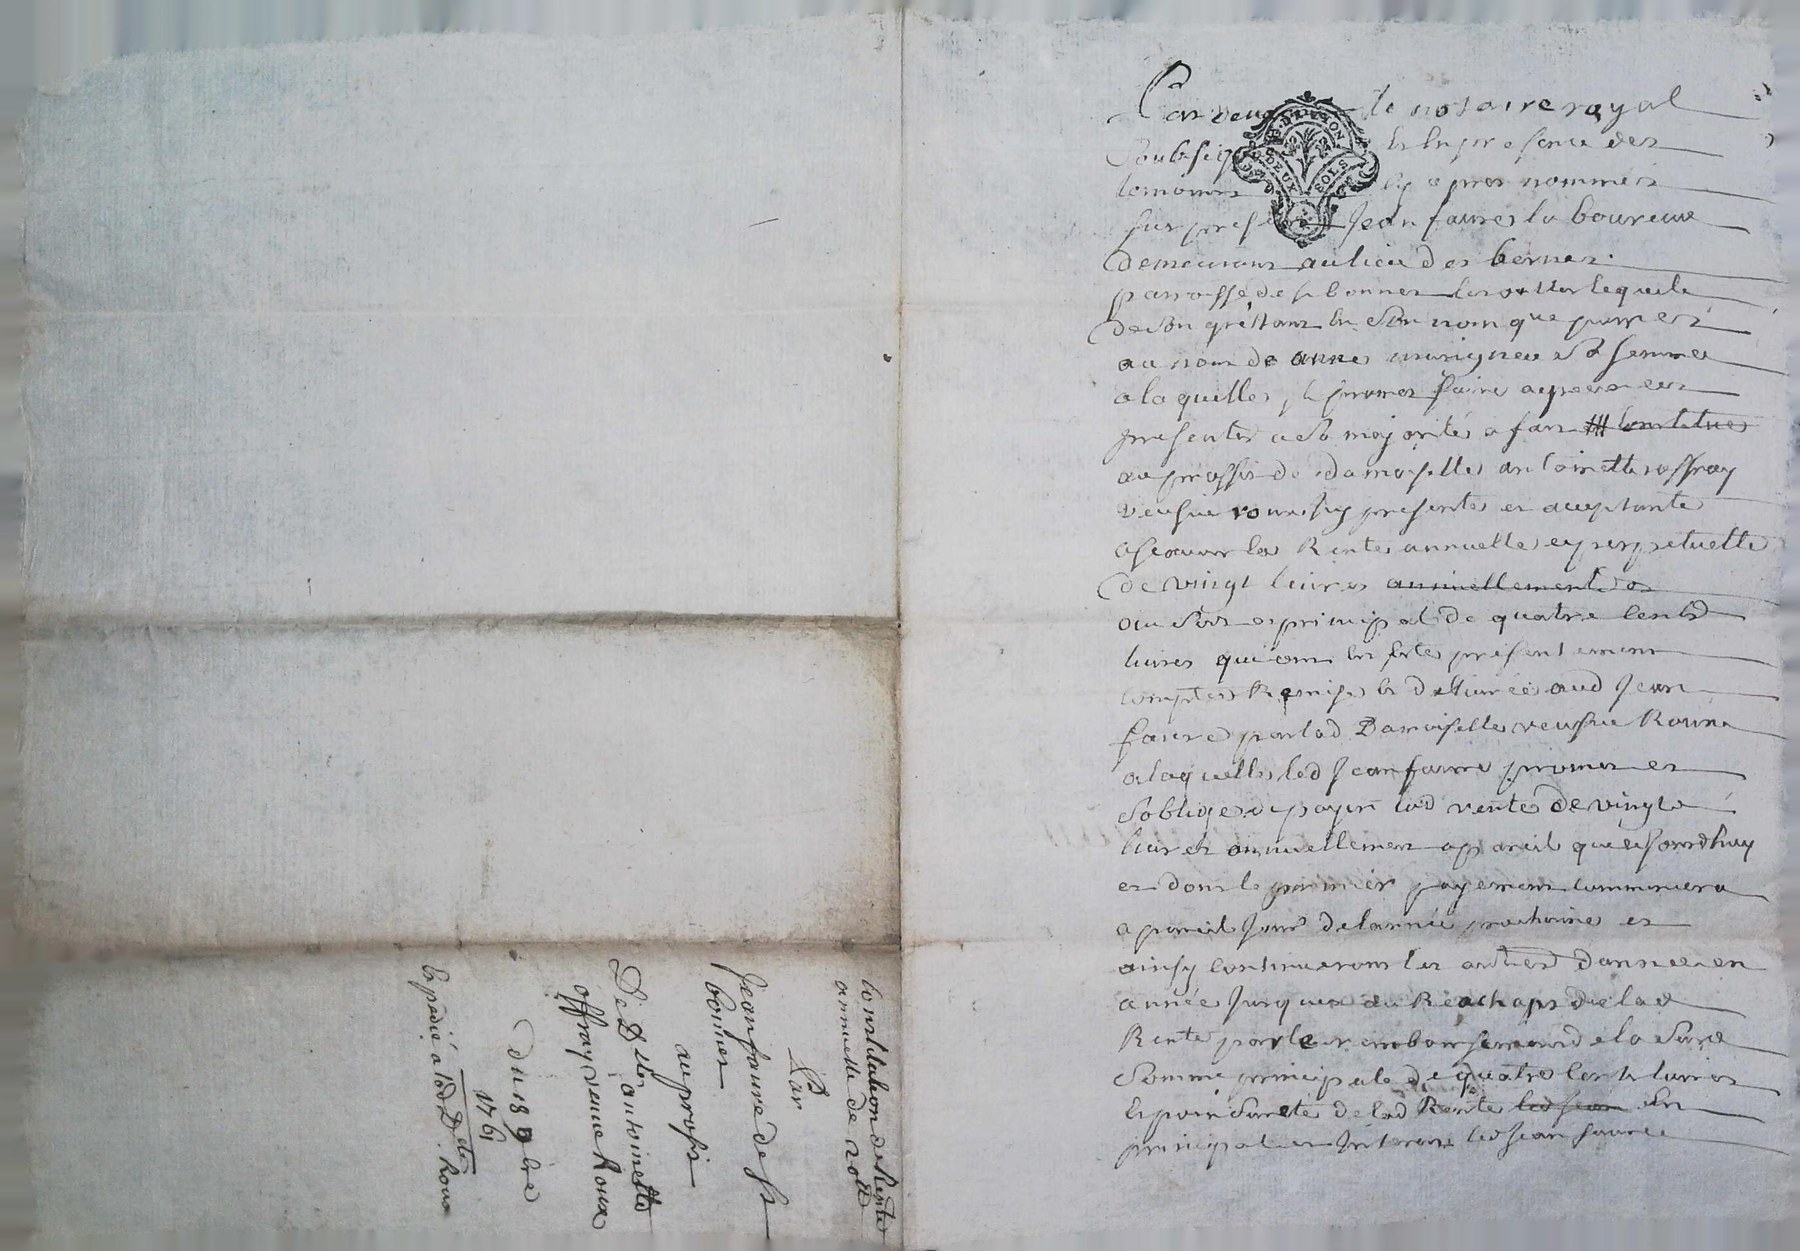 Par deua le notaire royal
Soubsig et en presence des
temoins cy apres nommés
fut present Jean faure laboureur
demeurant au lieu des bernes
parroisse de st bonnet lequel
de son gré tant en son nom que pour et
au nom de anne sa femme
a laquelle il promet faire apreuver
presentes a sa majorité a fait constitue
au proffit de damoiselle antoinette offray
veufue roux icy presente et aceptante
a scavoir la Rente annuelle et perpetuelle
de vingt livres annuellement et
au sort principal de quatre cents
livres qui ont eté presentement
comptés Remises et delivrées aud Jean
faure par lad Damoiselle veufue Roux
a laquelle led Jean faure promet et
soblige de payer lad rente de vingt
livres annuellement a pareil que ce jourdhuy
et dont le premier payement commencera
a pareil jour de lannée prochaine et
ainsy continueront les autres dannée en
année jusques au Reachapt de lad
Rente par le remboursement de la
Somme principale de quatre cents livres
et pour sureté de lad Rente led jean en
principal et interets led jean faure
Constitution de Rente
annuelle de 20 tt
Par
Jean faure de st
bonnet
au profit
De Dlle antoinette
offray veuve Roux
du 18 9bre
1761
Expedié a lad Dlle Roux
DEUX SOLS